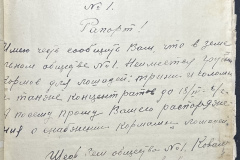 № 1.
Рапорт!
Имею честь сообщить Вам, что в земе
ном обществе № 1. Неимеется груб
кормов для лошадей: трини и соломы
а также, концентратов до 15/
А посему прошу Вашего распоряже
ния о снабжении кормами лошадей.
общества № 1, Ковале